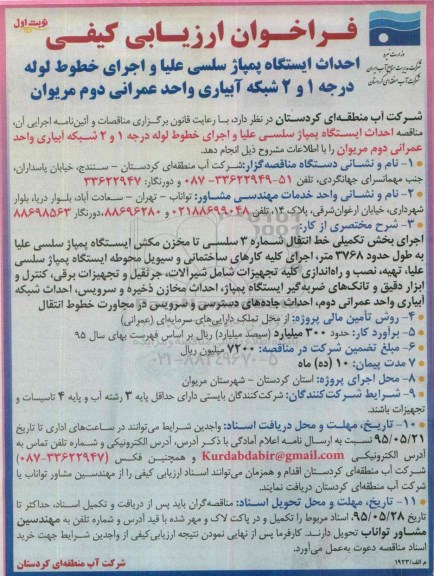 نوبت اول
فراخوان ارزیابی کیفی
وزارت نیرو
شرکت مدیریت منابع آب ایران
شرکت آب منطقه‌ای کردستان
احداث ایستگاه پمپاژ سلسی علیا و اجرای خطوط لوله
درجه ۱ و ۲ شبکه آبیاری واحد عمرانی دوم مریوان
شرکت آب منطقه‌ای کردستان در نظر دارد، با رعایت قانون برگزاری مناقصات و آئین‌نامه اجرایی آن،
مناقصه احداث ایستگاه پمپاژ سلسی علیا و اجرای خطوط لوله درجه ۱ و ۲ شبکه آبیاری واحد
عمرانی دوم مریوان را با اطلاعات مشروح ذیل انجام دهد.
۱- نام و نشانی دستگاه مناقصه‌گزار: شرکت آب منطقه‌ای کردستان - سنندج، خیابان پاسداران،
جنب مهمانسرای جهانگردی، تلفن ۵۱-۳۳۶۲۲۹۴۹-۰۸۷ و دورنگار: ۳۳۶۲۲۹۴۷
۲- نام و نشانی واحد خدمات مهندسی مشاور: تواناب - تهران - سعادت آباد، بلوار دریا، بلوار
شهرداری، خیابان ارغوان‌شرقی، پلاک ۱۴، تلفن ۰۲۱۸۸۶۹۹۰۴۸ و ۸۸۶۹۶۲۸۰، دورنگار ۸۸۶۹۸۵۶۳
۳- شرح مختصری از کار:
اجرای بخش تکمیلی خط انتقال شماره ۳ سلسی تا مخزن مکش ایستگاه پمپاژ سلسی علیا
به طول حدود ۳۷۶۸ متر، اجرای کلیه کارهای ساختمانی و سیویل محوطه ایستگاه پمپاژ سلسی
علیا، تهیه، نصب و راه‌اندازی کلیه تجهیزات شامل شیرآلات، جرثقیل و تجهیزات برقی، کنترل و
ابزار دقیق و تانک‌های ضربه‌گیر ایستگاه پمپاژ، احداث مخازن ذخیره و سرویس، احداث شبکه
آبیاری واحد عمرانی دوم، احداث جاده‌های دسترسی و سرویس در مجاورت خطوط انتقال
۴- روش تأمین مالی پروژه: از محل تملک دارایی‌های سرمایه‌ای (عمرانی)
۵- برآورد کار: حدود ۳۰۰ میلیارد (سیصد میلیارد) ریال بر اساس فهرست بهای سال ۹۵
۶- مبلغ تضمین شرکت در مناقصه: ۷۲۰۰ میلیون ریال
۷- مدت پیمان: ۱۰ (ده) ماه
۸- محل اجرای پروژه: استان کردستان - شهرستان مریوان
۹- شرایط شرکت‌کنندگان: شرکت‌کنندگان بایستی دارای حداقل پایه ۳ رشته آب و پایه ۴ تاسیسات و
تجهیزات باشند.
۱۰- تاریخ، مهلت و محل دریافت اسناد: واجدین شرایط می‌توانند در ساعت‌های اداری تا تاریخ
۹۵/۰۵/۲۱ نسبت به ارسال نامه اعلام آمادگی با ذکر آدرس، آدرس الکترونیکی و شماره تلفن تماس به
آدرس الکترونیکی Kurdabdabir@gmail.com و همچنین فکس (۳۳۶۲۲۹۴۷-۰۸۷)
شرکت آب منطقه‌ای کردستان اقدام و همزمان می‌توانند اسناد ارزیابی کیفی را از مهندسین مشاور تواناب یا
شرکت آب منطقه‌ای کردستان دریافت نمایند.
۱۱- تاریخ، مهلت و محل تحویل اسناد: مناقصه‌گران باید پس از دریافت و تکمیل اسناد، حداکثر تا
تاریخ ۹۵/۰۵/۲۸ اسناد مربوط را تکمیل و در پاکت لاک و مهر شده با قید آدرس و شماره تلفن به مهندسین
مشاور تواناب تحویل دارند. کارفرما پس از نهایی نمودن نتیجه ارزیابی‌کیفی از واجدین شرایط جهت خرید
اسناد مناقصه دعوت به‌عمل می‌آورد.
م الف/۱۹۲۳
شرکت آب منطقه‌ای کردستان